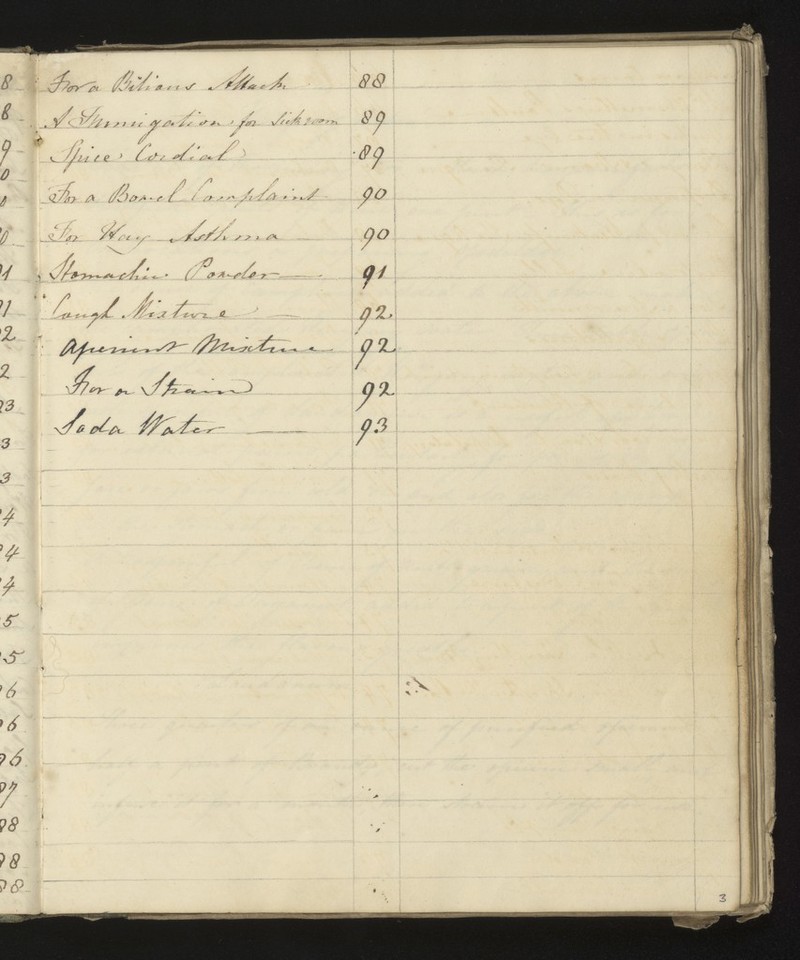 For a Bilious Attack 88
A Fumigation for sick room 89
Spice Cordial 89
For a Bowel Complaint 90
For Hay Asthma 90
Stomachic Powder 91
Cough Mixture 92
Aperient Mixture 92
For a Strain 92
Soda Water 93
3